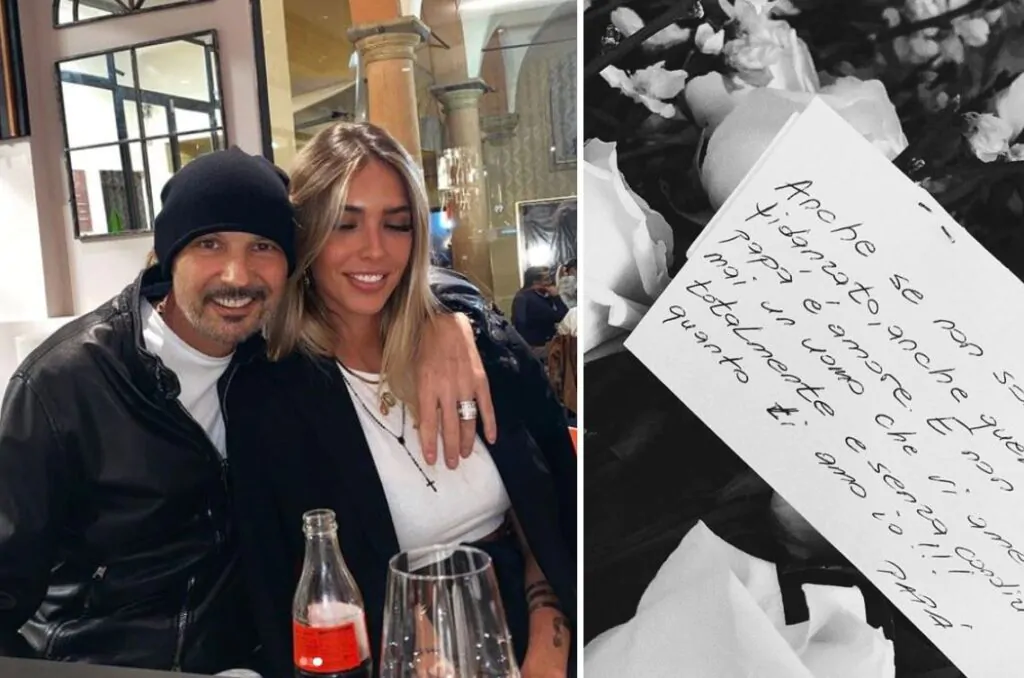 Anche se non
fidanzato, anche
papà è amore. E non
mai un uomo che vi
totalmente e senza
quanto ti amo io!! PAPÀ